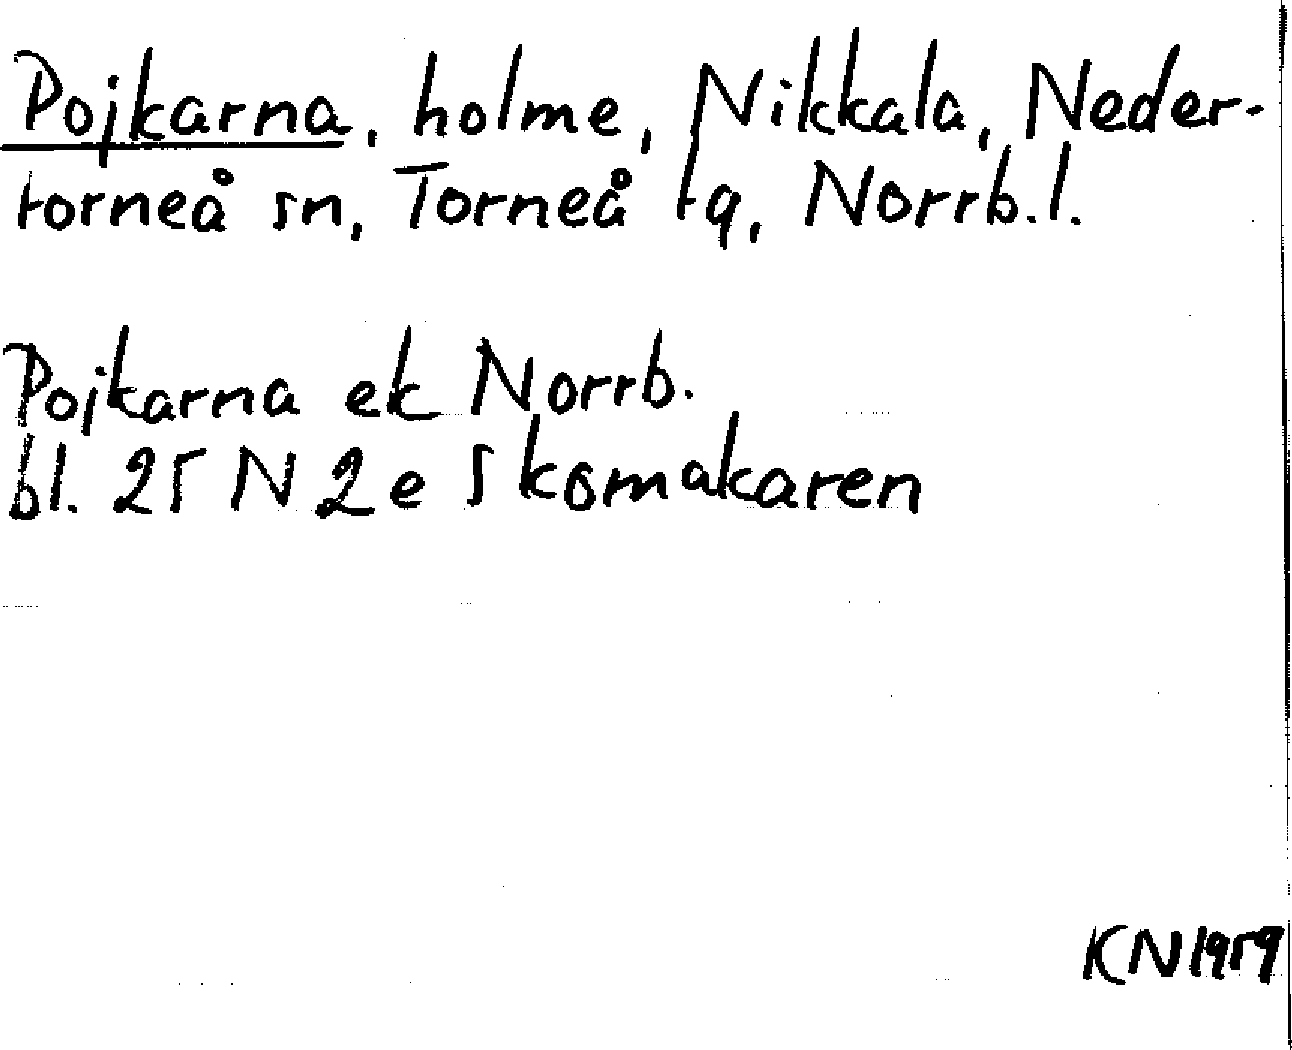 Pojkarna, holme, Nikkala, Neder-
torneå sn, Torneå tg, Norrb. l.
Pojkarna ek Norrb.
bl. 25 N 2e Skomakaren
KN 1959